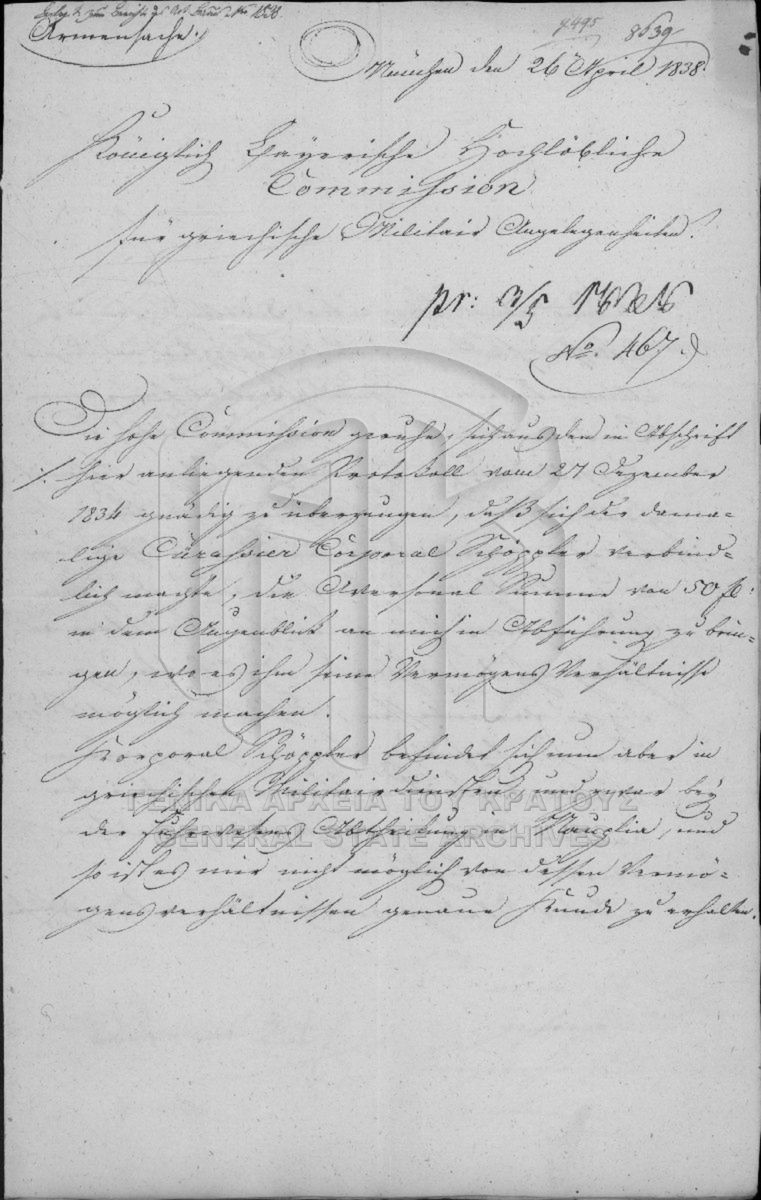 Armensache.
8539
München den 26 April 1838.
Königlich Bayerische Hochlöbliche
Commission
für griechische Militair Angelegenheiten.
pr: 3/5 1838
No. 467.
Die hohe Commission geruhe, sich aus dem in Abschrift
hier anliegenden Protokoll vom 27 Dezember
1834 gnädig zu überzeugen, daß sich der dama-
lige Cürassier Corporal Schöppler verbind-
lich machte, die Aversional Summe von 50 fl:
in dem Augenblick an mich in Abführung zu brin-
gen, wo es ihm seine Vermögens Verhältnisse
möglich machen.
Korporal Schöppler befindet sich nun aber in
griechischen Militairdiensten, und zwar bey
der Fuhrwesens Abtheilung in Nauplia, und
so ist es mir nicht möglich von dessen Vermö-
gensverhältnissen genaue Kunde zu erhalten.
ΓΕΝΙΚΑ ΑΡΧΕΙΑ ΤΟΥ ΚΡΑΤΟΥΣ
GENERAL STATE ARCHIVES